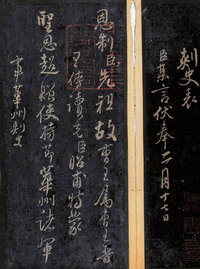 刺史表
臣言伏奉二月十七日
恩制臣先祖故曹王屬
王侍讀先臣昭甫特蒙
聖恩超贈使持節華州諸軍
事華州刺史